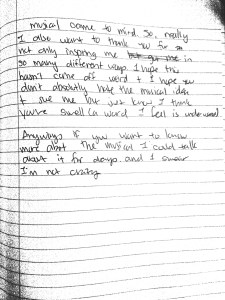 musical came to mind. So, really
I also want to thank you for so
not only inspiring me but got me in
so many different ways I hope this
hasn't come off weird & I hope you
don't absolutely hate the musical idea
+ sue me lol just know I think
you're swell (a word I feel is underused)
Anyways if you want to know
more about the musical I could talk
about it for days. and I swear
I'm not crazy